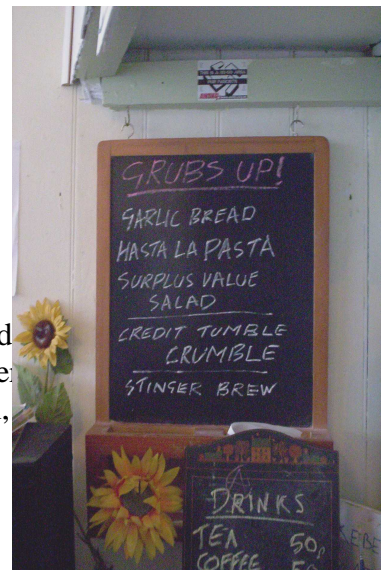 GRUBS UP!
GARLIC BREAD
HASTA LA PASTA
SURPLUS VALUE
SALAD
CREDIT TUMBLE
CRUMBLE
STINGER BREW
DRINKS
TEA 50p
COFFEE